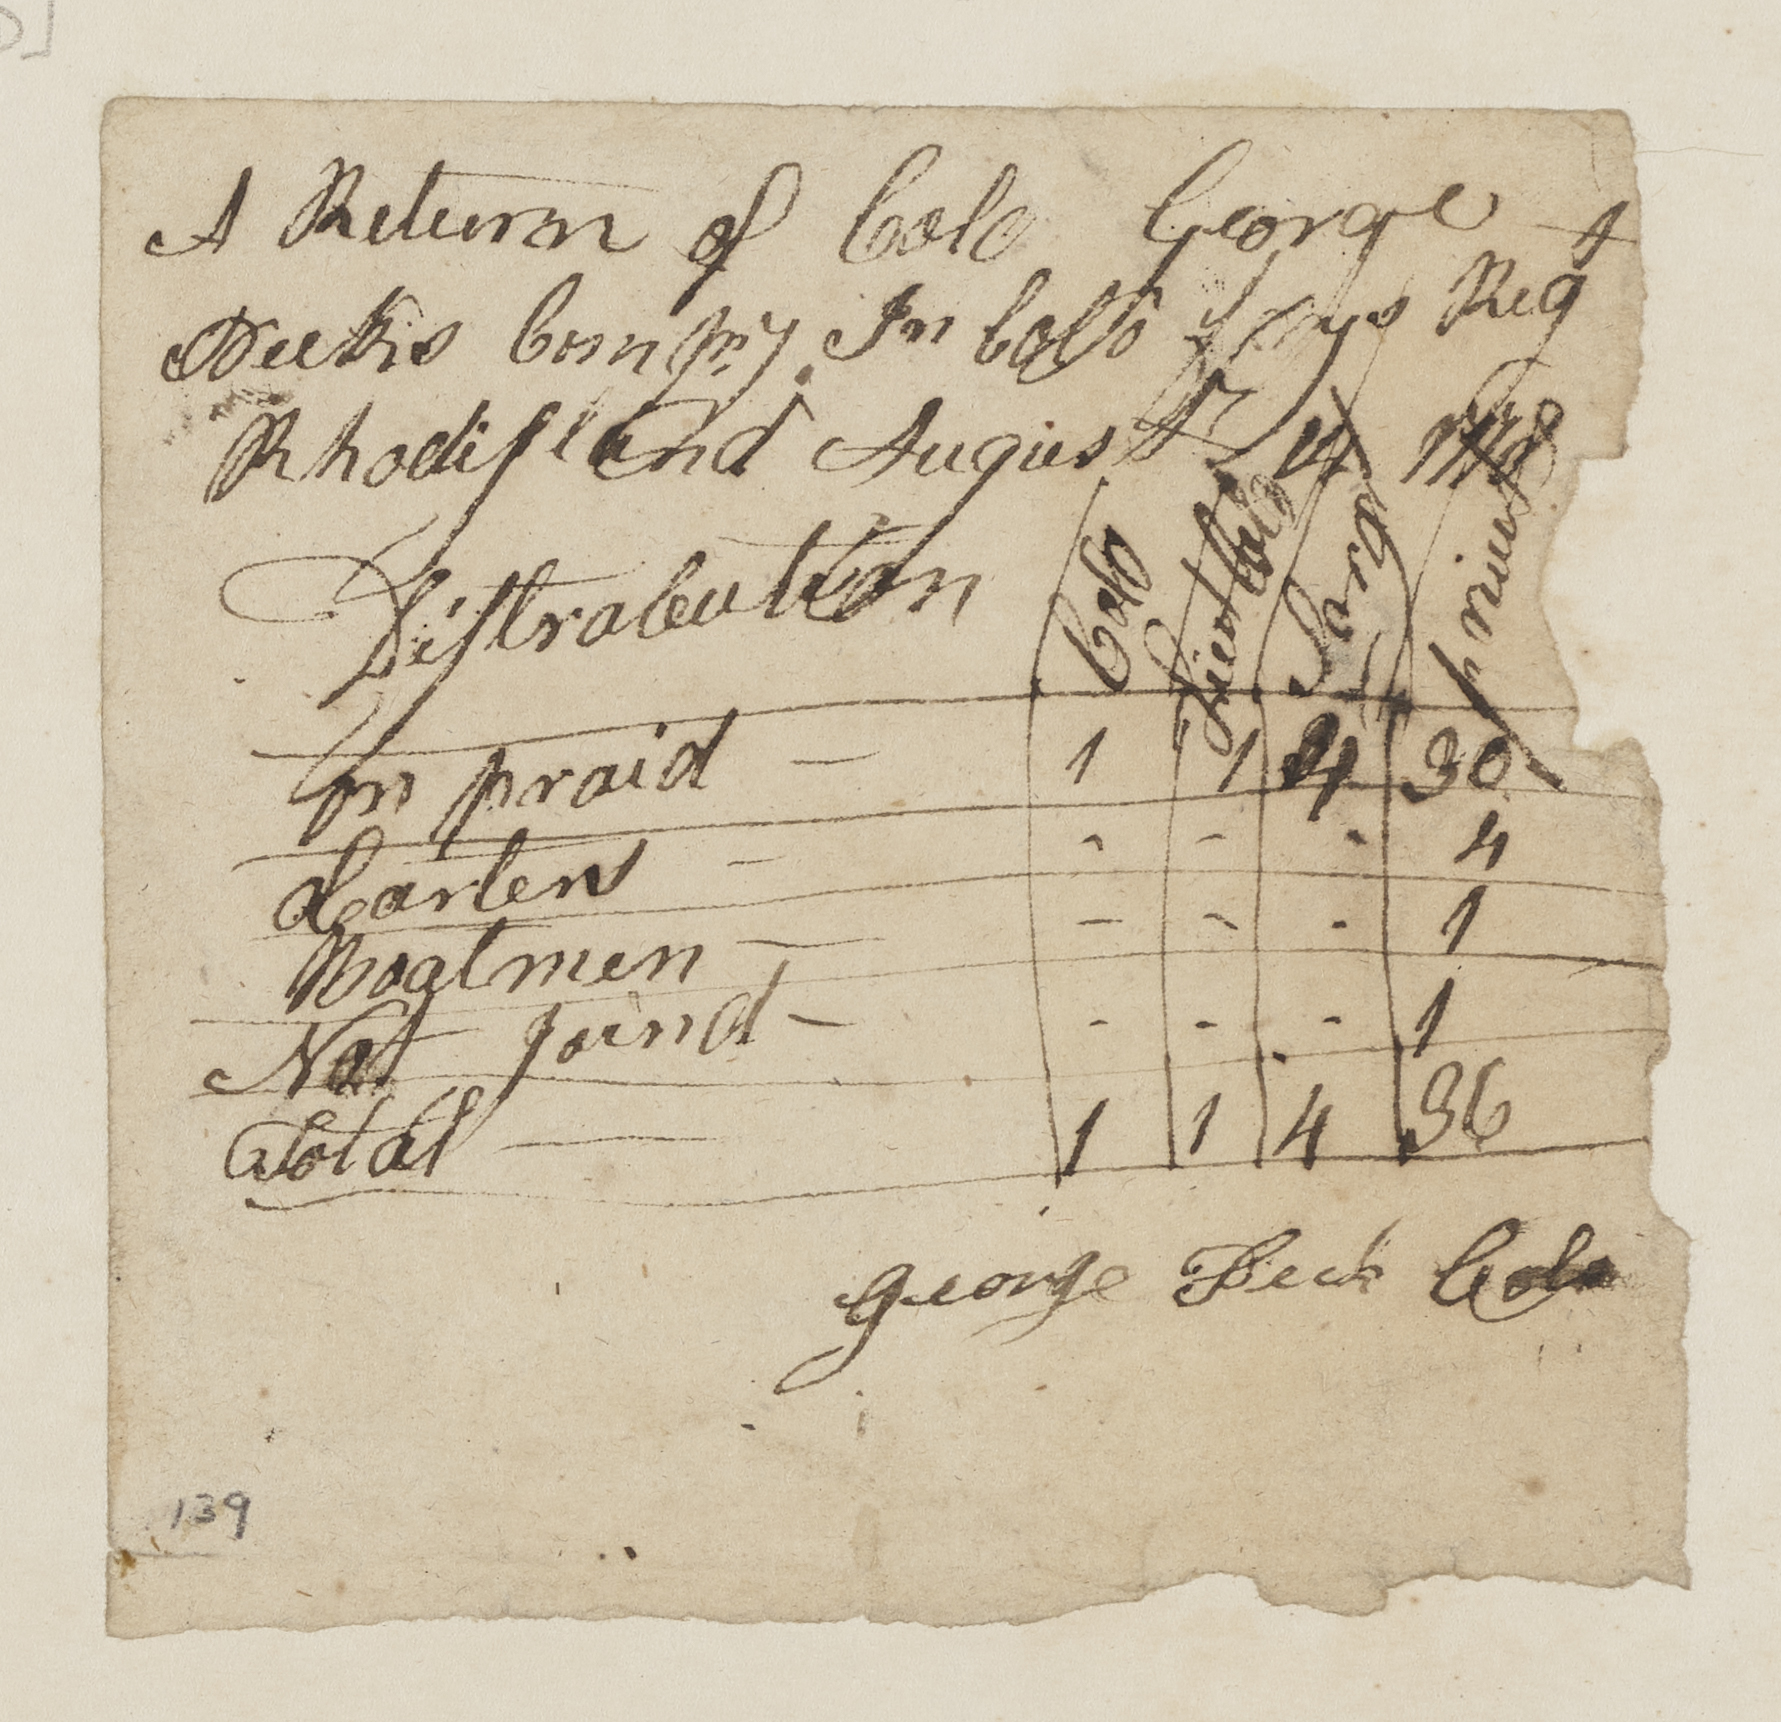 A Return of Colo George
Pecks Compy In Colo Frys Regt
Rhodisland August
Distrabeution Colo Lieut Colo Sarg
In praid — 1 1 4 30
Carters — - - - 4
Boatmen — - - - 1
Not Joind - - - - 1
Total — 1 1 4 36
George Peck Colo
139